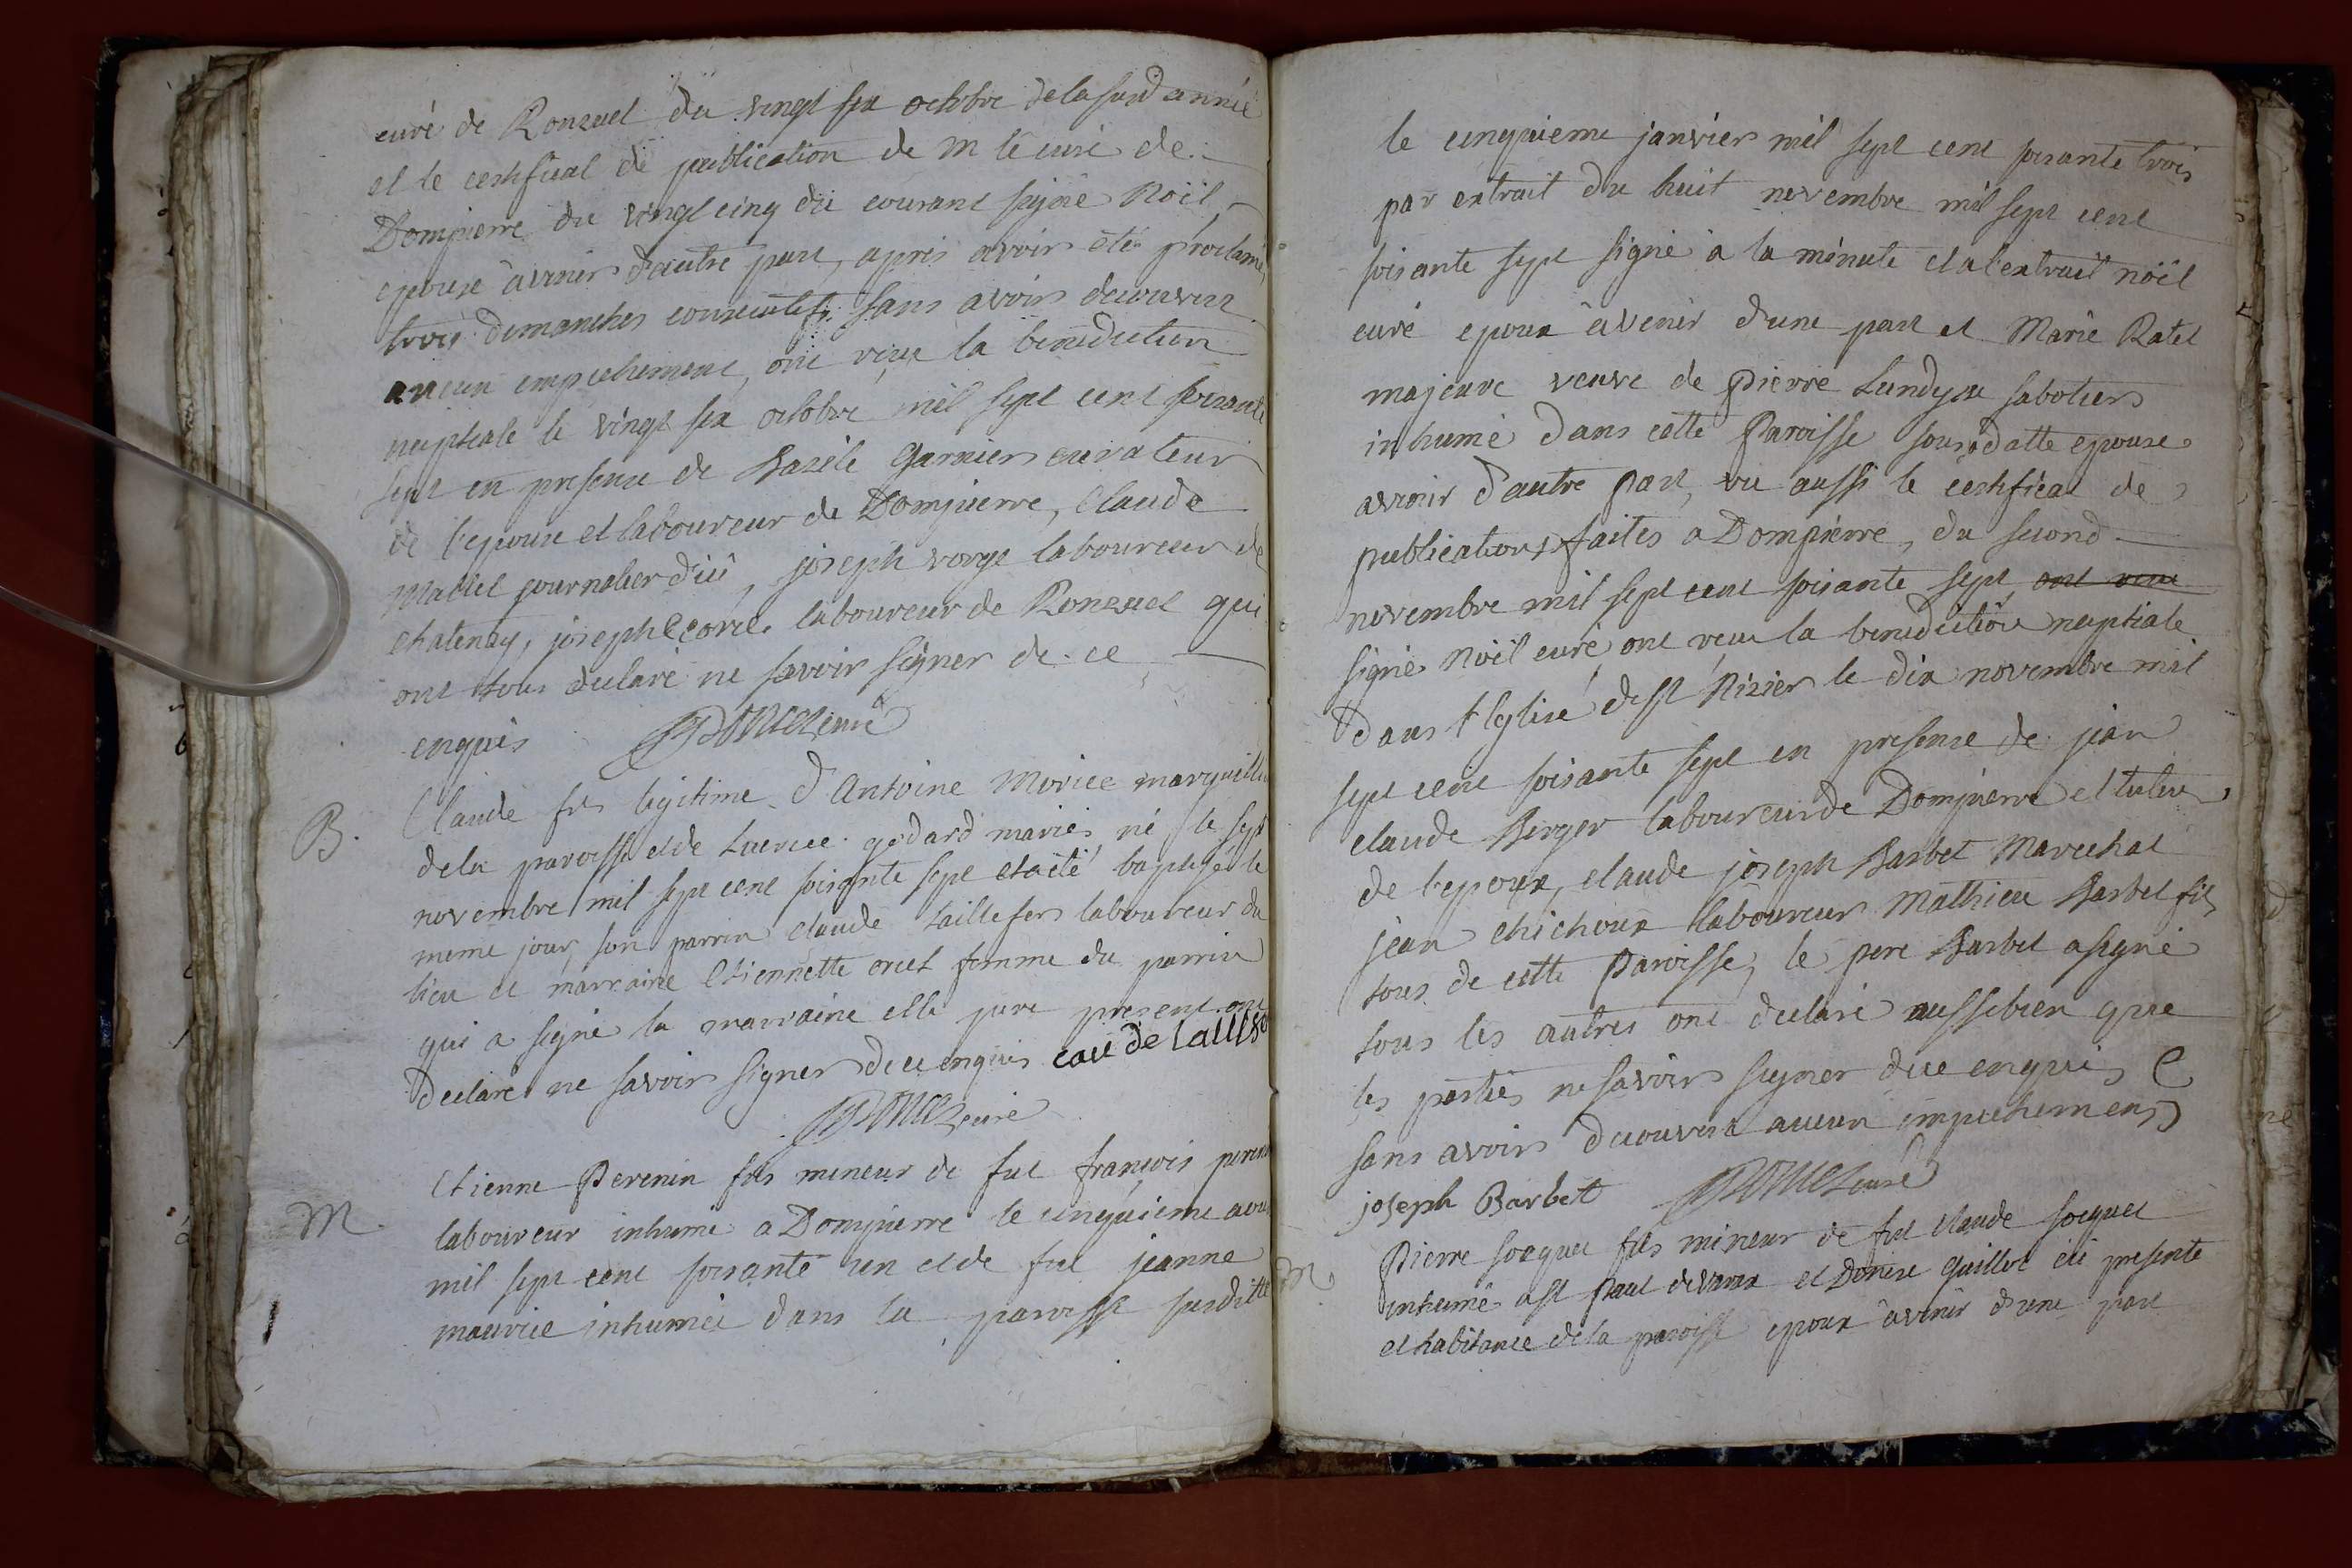 curé de Ronzuel du vingt six octobre de la susd année
et le certificat de publication de m le curé de
Dompierre du vingt cinq du courant signé Noël
epouse avenir d'autre part, apres avoir été proclamé
trois dimanches consecutifs sans avoir decouvert
aucun empechement, ont reçu la benediction
nuptiale le vingt six octobre mil sept cent soixante
sept en presence de Bazile Garnier curateur
de l'epouse et laboureur de Dompierre, Claude
Mallet journalier d'ici, joseph voryr laboureur de
chatenay, joseph laboureur de Ronzuel qui
ont tous declaré ne savoir signer de ce
enquis curé
B. Claude fils legitime d'Antoine Morice marguillier
de la paroisse et de Lucrece godard mariés, né le sept
novembre mil sept cent soixante sept et a été baptisé le
meme jour, son parrin claude taillefer laboureur du
lieu et marraine Etiennette oret femme du parrin
qui a signé la marraine elle pere present ont
declaré ne savoir signer de ce enquis
curé
M. Etienne Perenin fils mineur de fut françois peren
laboureur inhumé a Dompierre le cinquieme
mil sept cent soixante un et de fut jeanne
maurice inhumée dans la paroisse susditte
le cinquieme janvier mil sept cent soixante trois
par extrait du huit novembre mil sept cent
soixante sept signé a la minute et a l'extrait noël
curé epoux avenir d'une part et Marie Ratel
majeure veuve de Pierre Lundyu sabotier
inhumé dans cette Paroisse sous datte epouse
avenir d'autre part, vu aussi le certificat de
publications faites a Dompierre, du second
novembre mil sept cent soixante sept, ont reçu
signé Noël curé, ont reçu la benediction nuptiale
dans l'Eglise de St Nizier le dix novembre mil
sept cent soixante sept en presence de jean
claude Berger laboureur de Dompierre et tuteur
de l'epoux, claude joseph Barbet Marechal
jean chichoux laboureur Mathieu Barbet fils
tous de cette Paroisse, le pere Barbet a signé
tous les autres ont declaré aussi bien que
les parties ne savoir signer de ce enquis
sans avoir decouvert aucun empechement
joseph Barbet curé
M. Pierre socquet fils mineur de fut claude socquet
inhumé a St Paul de varax et Denise Guillot ici presente
et habitante de la paroisse epoux avenir d'une part